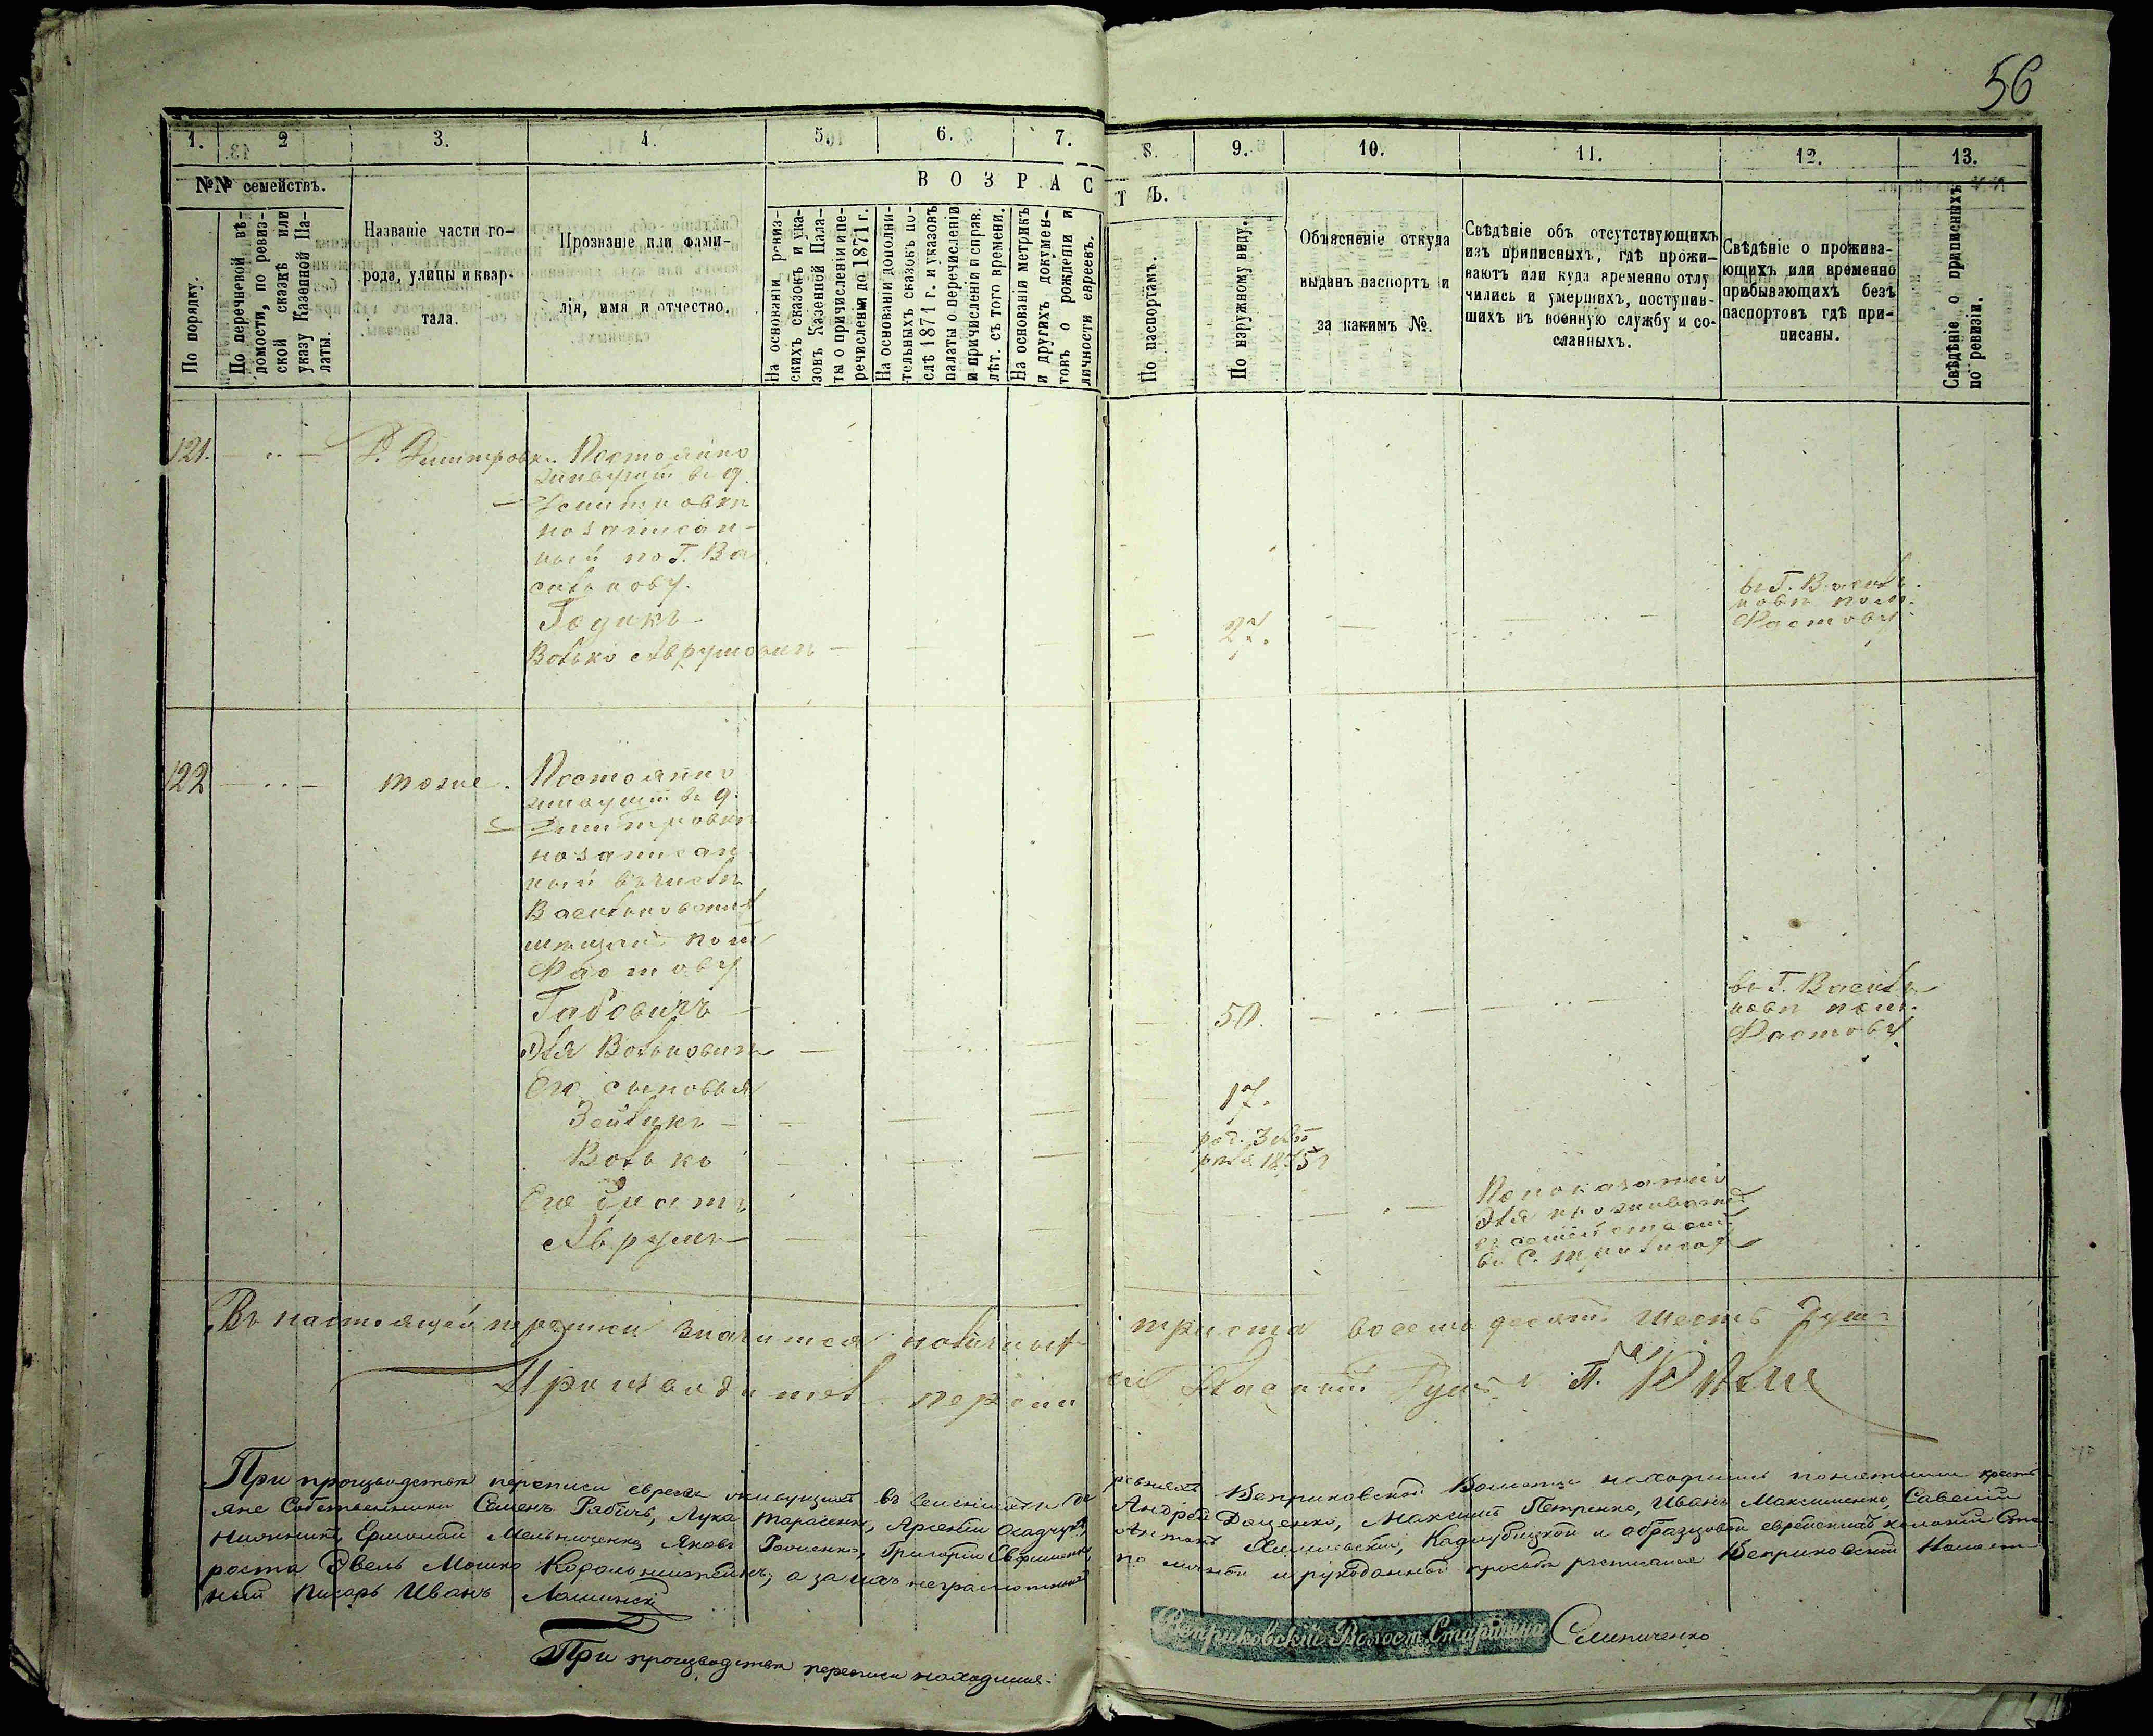 56
1. 2 3. 4. 5. 6. 7. 8. 9. 10. 11. 12. 13.
№№ семействъ.
По порядку.
По перечневой вѣ-
домости, по ревиз-
ской сказкѣ или
указу Казенной Па-
латы.
Названіе части го-
рода, улицы и квар-
тала.
Прозваніе или фами-
лія, имя и отчество.
ВОЗРАСТЪ.
На основаніи ревиз-
скихъ сказокъ и ука-
зовъ Казенной Пала-
ты о причисленіи и пе-
речислены до 1871 г.
На основаніи дополни-
тельныхъ сказокъ по-
слѣ 1871 г. и указовъ
палаты о перечисленіи
и причисленіи и справ.
лѣт. съ того времени.
На основаніи метрикъ
и другихъ докумен-
товъ о рожденіи и
личности евреевъ.
По паспортамъ.
По наружному виду.
Объясненіе откуда
выданъ паспортъ и
за какимъ №.
Свѣдѣніе объ отсутствующихъ
изъ приписныхъ, гдѣ прожи-
ваютъ или куда временно отлу
чились и умершихъ, поступив-
шихъ въ военную службу и со-
сланныхъ.
Свѣдѣніе о прожива-
ющихъ или временно
прибывающихъ безъ
паспортовъ гдѣ при-
писаны.
Свѣдѣніе о приписныхъ
по ревизіи.
121. Д. Дмитровка Постоянно
живущій въ д.
Дмитровкѣ
но записан-
ный по Г. Ва
силькову.
Гедикъ
Волько Аврумовичъ 27.
въ Г. Василь
ковѣ по м.
Фастову
122 тоже. Постоянно
живущій въ д.
Дмитровкѣ
но записан
ный въ числѣ
Васильковскихъ
мѣщанъ по м
Фастову
Габовичъ
Эля Вольковичъ 50.
въ Г. Василь
ковѣ по м.
Фастову
Его сыновья
Зейликъ 17.
Волько род. 3
1875 г
Его братъ
Аврумъ
По показанію
Эля проживаетъ
съ семействомъ
въ С.
Въ настоящей переписи значится наличныхъ триста восемьдесятъ шесть душъ
Производилъ перепи
При производствѣ переписи евреевъ живущихъ въ селеніяхъ и де ревняхъ Веприковской Волости находились понятыми кресть
яне Собственники Семенъ Рябичъ, Лука Тарасенко, Арсеній Осадчукъ, Андрей Доценко, Максимъ Петренко, Иванъ Максименко, Савелій
Ермолай Мельниченко, Яковъ Григорій Ефименко Антонъ Кадлубицкой и образцовой еврейскихъ колоній Ста
роста Эвель Мошко а за ихъ неграмотныхъ по личной и рукоданной просьбѣ росписался Веприковскій Волост
ный Писарь Иванъ
Веприковскій Волост. Старшина
При производствѣ переписи находился